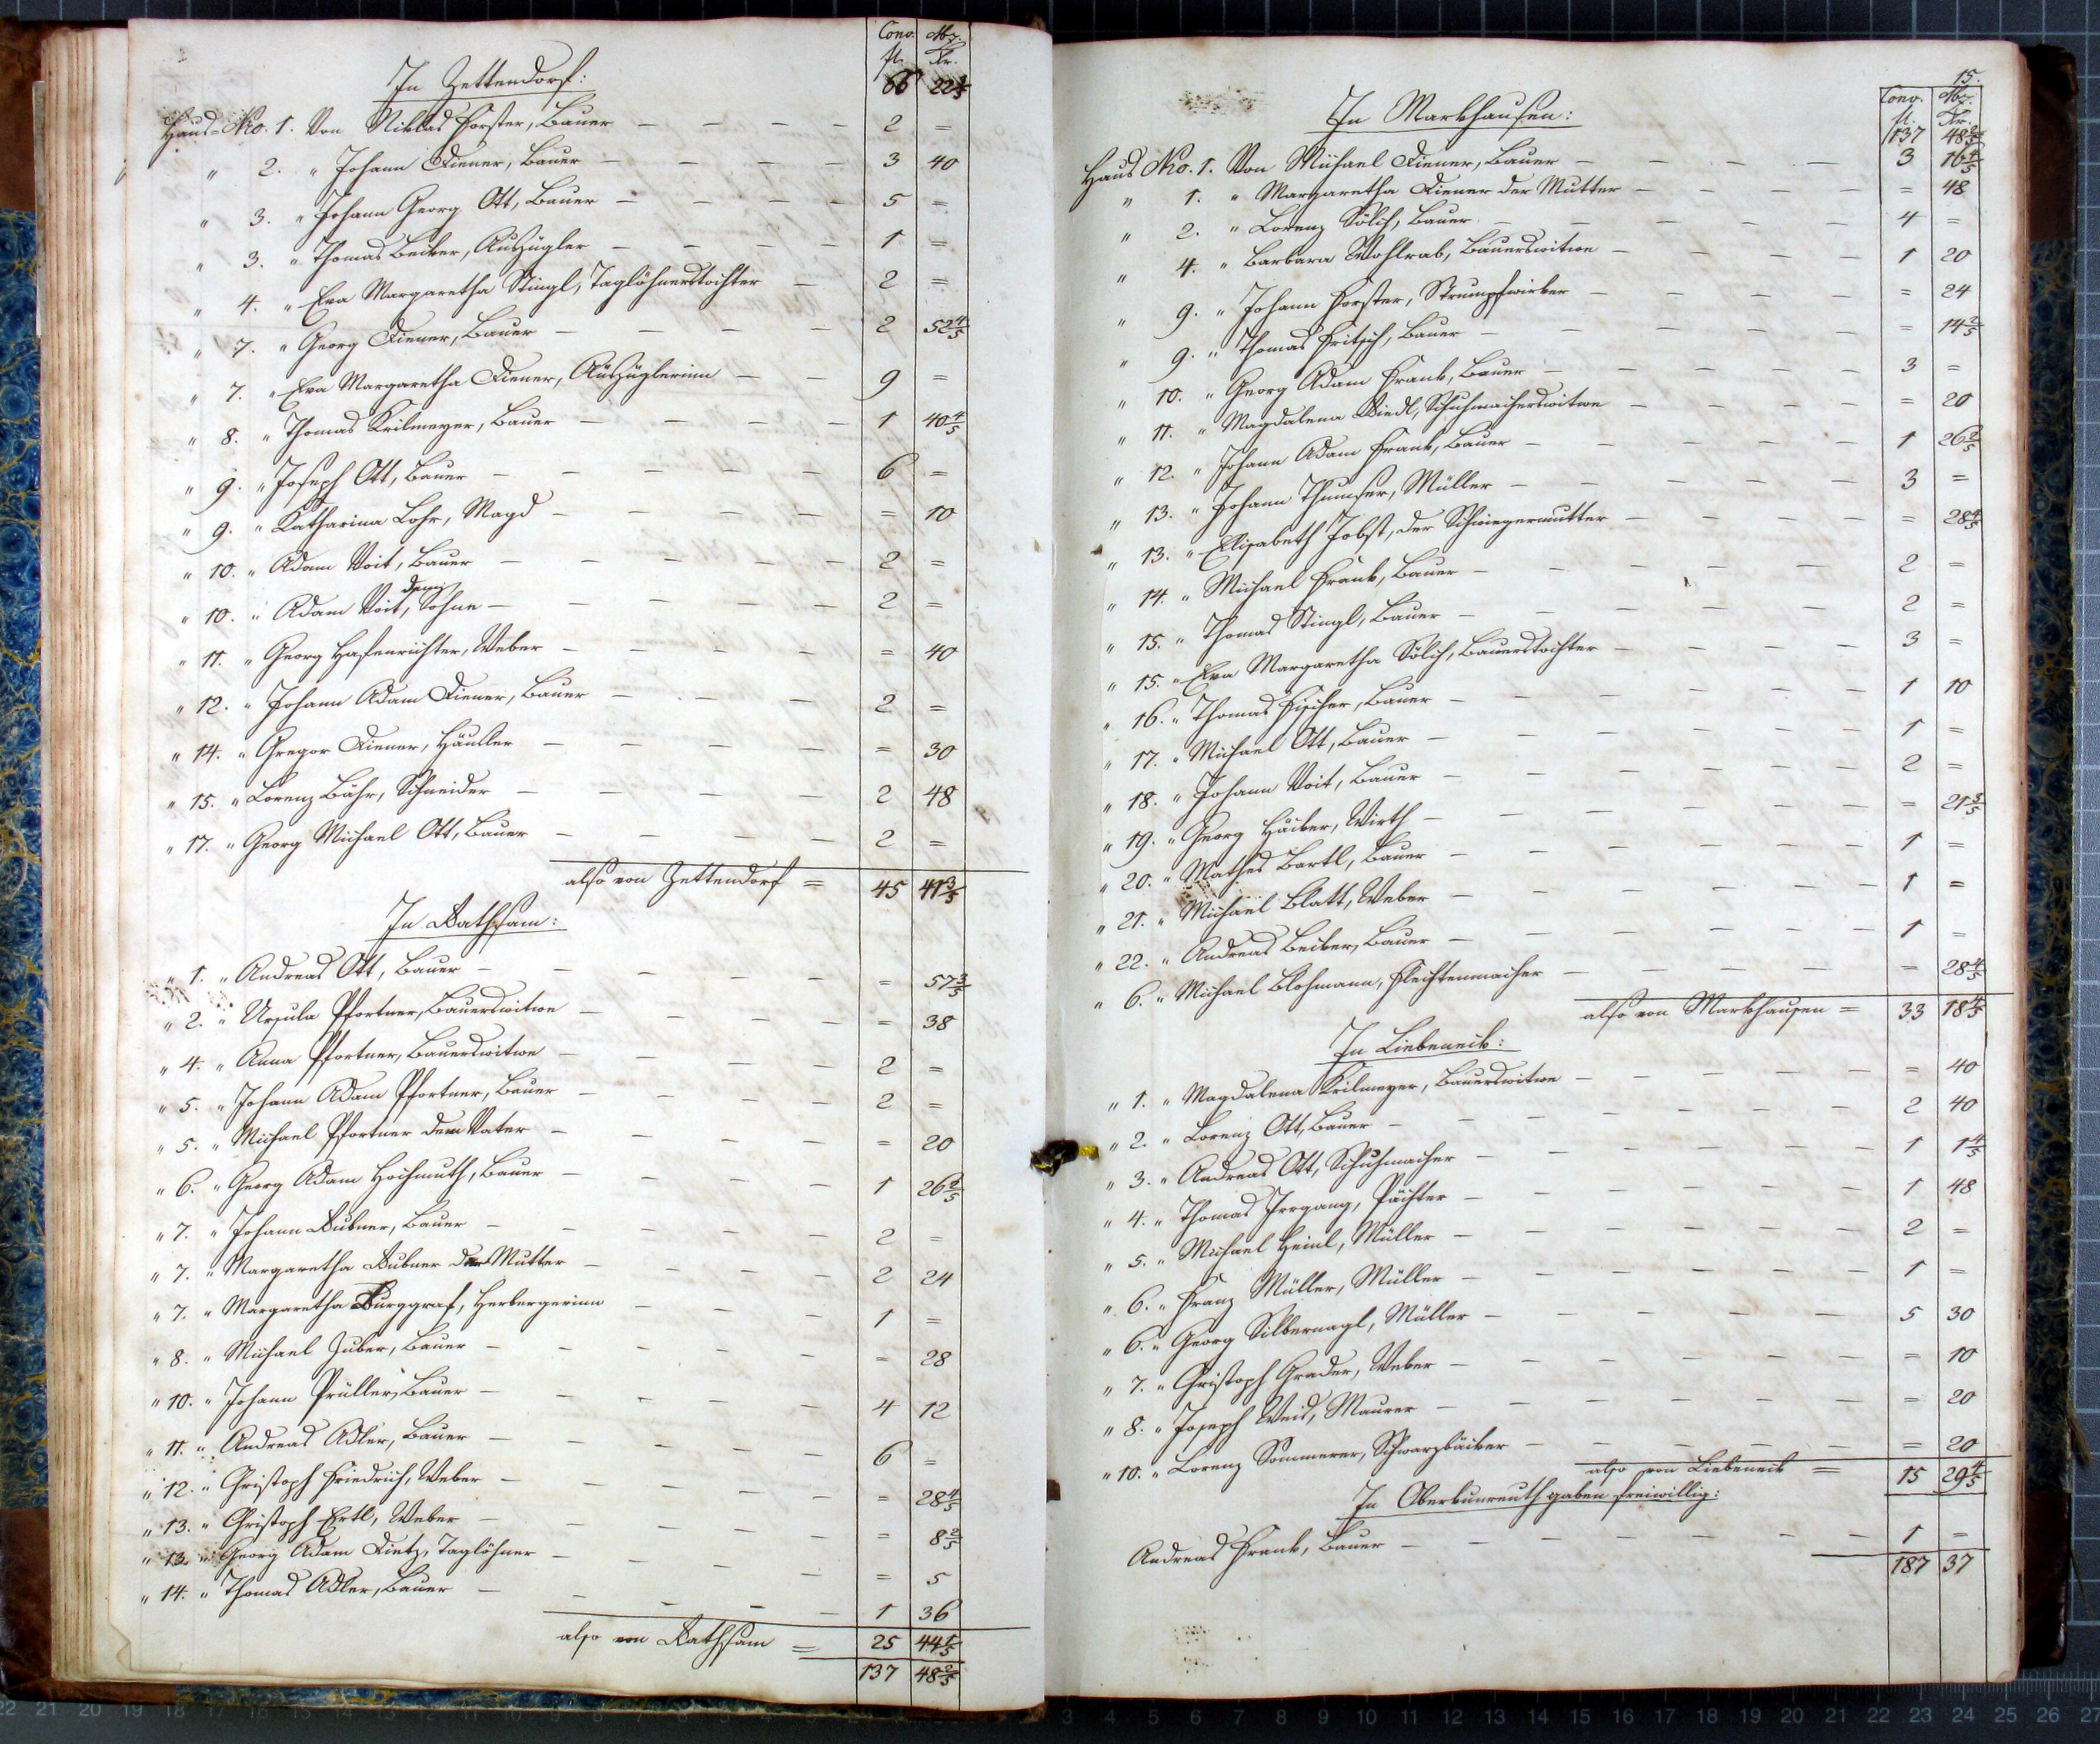 Conv. Mz.
fl. Kr.
In Zettendorf: 66 22 2/5
Haus-Nro. 1. Von Niklas Forster, Bauer — 2 =
" 2. " Johann Diener, Bauer — 3 40
" 3. " Johann Georg Ott, Bauer — 5 =
" 3. " Thomas Becker, Auszügler — 1 =
" 4. " Eva Margaretha Stingl, Taglöhnerstochter — 2 =
" 7. " Georg Diener, Bauer — 2 52 4/5
" 7. " Eva Margaretha Diener, Auszüglerinn — 9 =
" 8. " Thomas Keilmeyer, Bauer — 1 40 4/5
" 9. " Joseph Ott, Bauer — 6 =
" 9. " Katharina Lohr, Magd — = 10
" 10. " Adam Voit, Bauer — 2 =
" 10. " Adam Voit, dem Sohne — 2 =
" 11. " Georg Hasenrichter, Weber — = 40
" 12. " Johann Adam Diener, Bauer — 2 =
" 14. " Gregor Diener, Häusler — = 30
" 15. " Lorenz Bähr, Schneider — 2 48
" 17. " Georg Michael Ott, Bauer — 2 =
also von Zettendorf = 45 41 3/5
In Rathsam:
" 1. " Andreas Ott, Bauer — = 57 3/5
" 2. " Ursula Pfortner, Bauerswitwe — = 38
" 4. " Anna Pfortner, Bauerswitwe — 2 =
" 5. " Johann Adam Pfortner, Bauer — 2 =
" 5. " Michael Pfortner dem Vater — = 20
" 6. " Georg Adam Hochmuth, Bauer — 1 26 2/5
" 7. " Johann Dubner, Bauer — 2 =
" 7. " Margaretha Dubner der Mutter — 2 24
" 7. " Margaretha Burggraf, Herbergerinn — 1 =
" 8. " Michael Zuber, Bauer — = 28
" 10. " Johann Prüller, Bauer — 4 12
" 11. " Andreas Adler, Bauer — 6 =
" 12. " Christoph Friedrich, Weber — = 28 4/5
" 13. " Christoph Ertl, Weber — = 8 2/5
" 13. " Georg Adam Dietz, Taglöhner — = 5
" 14. " Thomas Adler, Bauer — 1 36
also von Rathsam = 25 44 1/5
137 48 2/5
15.
Conv. Mz.
fl. Kr.
In Markhausen: 137 48 2/5
Haus Nro. 1. Von Michael Diener, Bauer — 3 16 4/5
" 1. " Margaretha Diener der Mutter — = 48
" 2. " Lorenz Sölch, Bauer — 4 =
" 4. " Barbara Wohlrab, Bauerswitwe — 1 20
" 9. " Johann Forster, Strumpfwirker — = 24
" 9. " Thomas Fritsch, Bauer — = 14 2/5
" 10. " Georg Adam Frank, Bauer — 3 =
" 11. " Magdalena Riedl, Schuhmacherswitwe — = 20
" 12. " Johann Adam Frank, Bauer — 1 26 2/5
" 13. " Johann Thumser, Müller — 3 =
" 13. " Elisabeth Jobst, der Schwiegermutter — = 28 4/5
" 14. " Michael Frank, Bauer — 2 =
" 15. " Thomas Stingl, Bauer — 2 =
" 15. " Eva Margaretha Sölch, Bauerstochter — 3 =
" 16. " Thomas Fischer, Bauer — 1 10
" 17. " Michael Ott, Bauer — 1 =
" 18. " Johann Voit, Bauer — 2 =
" 19. " Georg Häcker, Wirth — = 21 3/5
" 20. " Mathes Bartl, Bauer — 1 =
" 21. " Michael Blatt, Weber — 1 =
" 22. " Andreas Becker, Bauer — 1 =
" 6. " Michael Blohmann, Flechtenmacher — = 28 4/5
also von Markhausen = 33 18 4/5
In Liebeneck:
" 1. " Magdalena Keilmeyer, Bauerswitwe — = 40
" 2. " Lorenz Ott, Bauer — 2 40
" 3. " Andreas Ott, Schuhmacher — 1 1 4/5
" 4. " Thomas Irrgang, Pächter — 1 48
" 5. " Michael Heinl, Müller — 2 =
" 6. " Franz Müller, Müller — 1 =
" 6. " Georg Silbernagl, Müller — 5 30
" 7. " Christoph Grader, Weber — = 10
" 8. " Joseph Weis, Maurer — = 20
" 10. " Lorenz Sommerer, Schwarzbäcker — = 20
also von Liebeneck = 15 29 4/5
In Oberkunreuth gaben freiwillig:
Andreas Frank, Bauer — 1 =
187 37